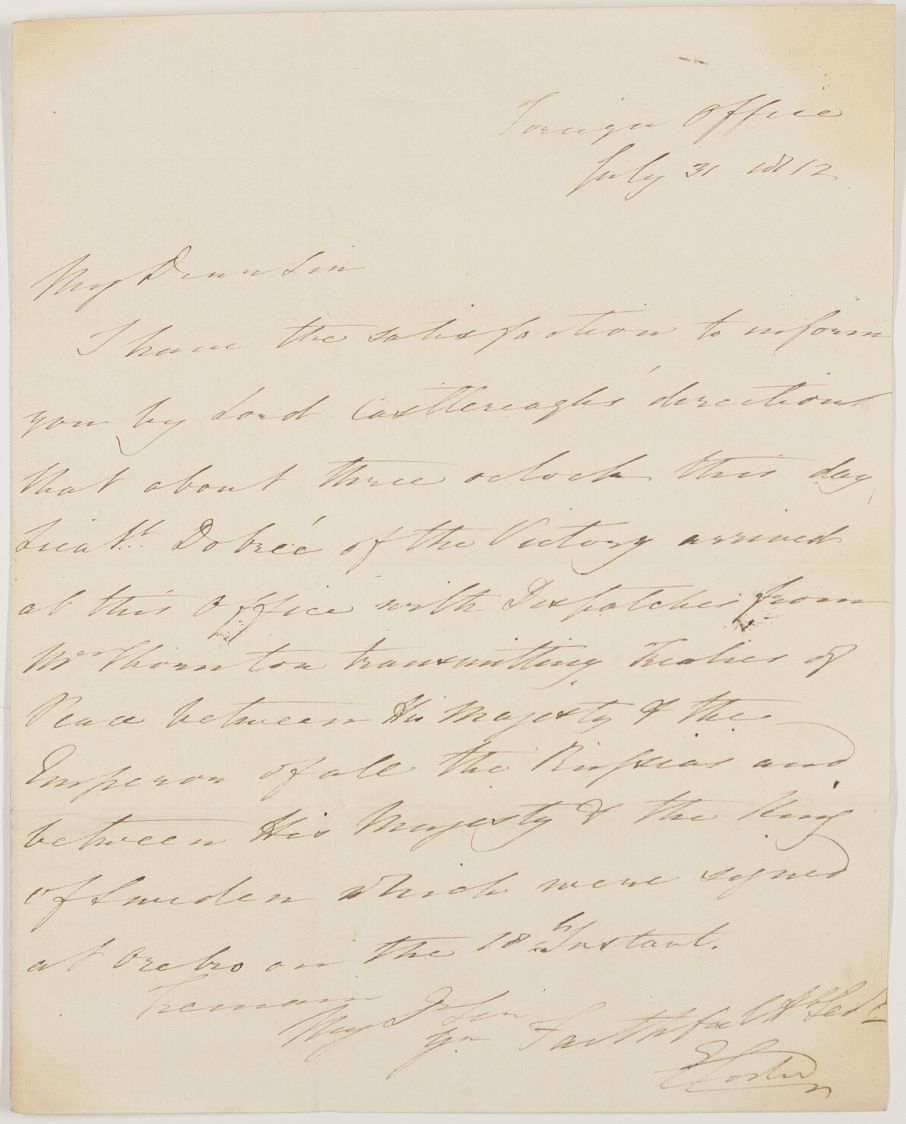 Foreign Office
July 31 1812
My Dear Sir
I have the satisfaction to inform
you by Lord Castlereagh's direction
that about three o'clock this day
Lieut.t Dobreé of the Victory arrived
at this Office with Dispatches from
Mr Thornton transmitting Treaties of
Peace between His Majesty & the
Emperor of all the Russias and
between His Majesty & the King
of Sweden which were signed
at Orebro on the 18th Instant.
I remain
My Dr Sir
yr Faithful Hble Sert